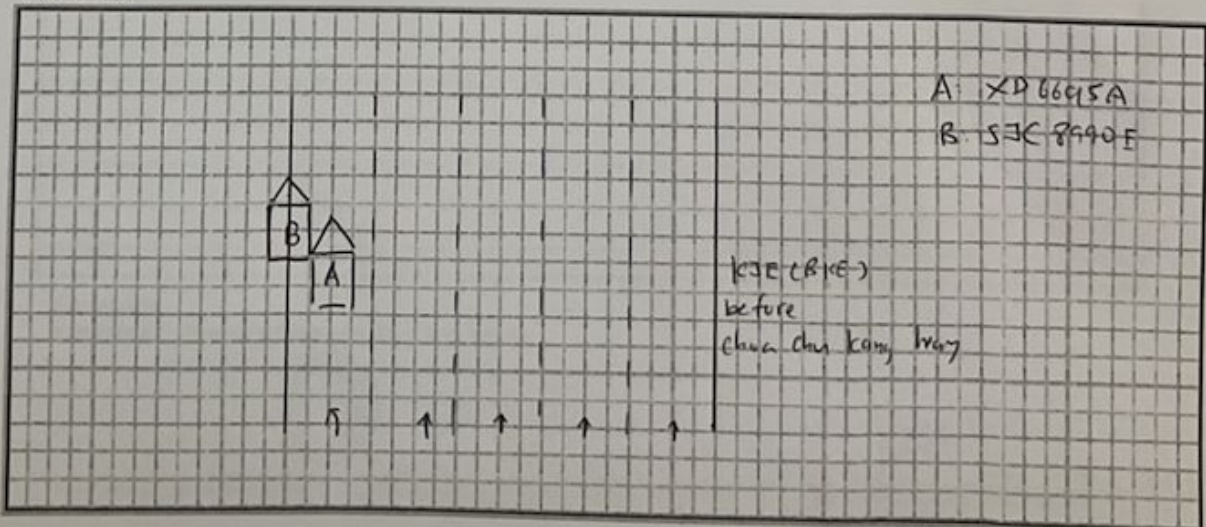 A: XD6695A
B: SJC 8990E
B
A
KJE (BKE)
before
chua chu kang way